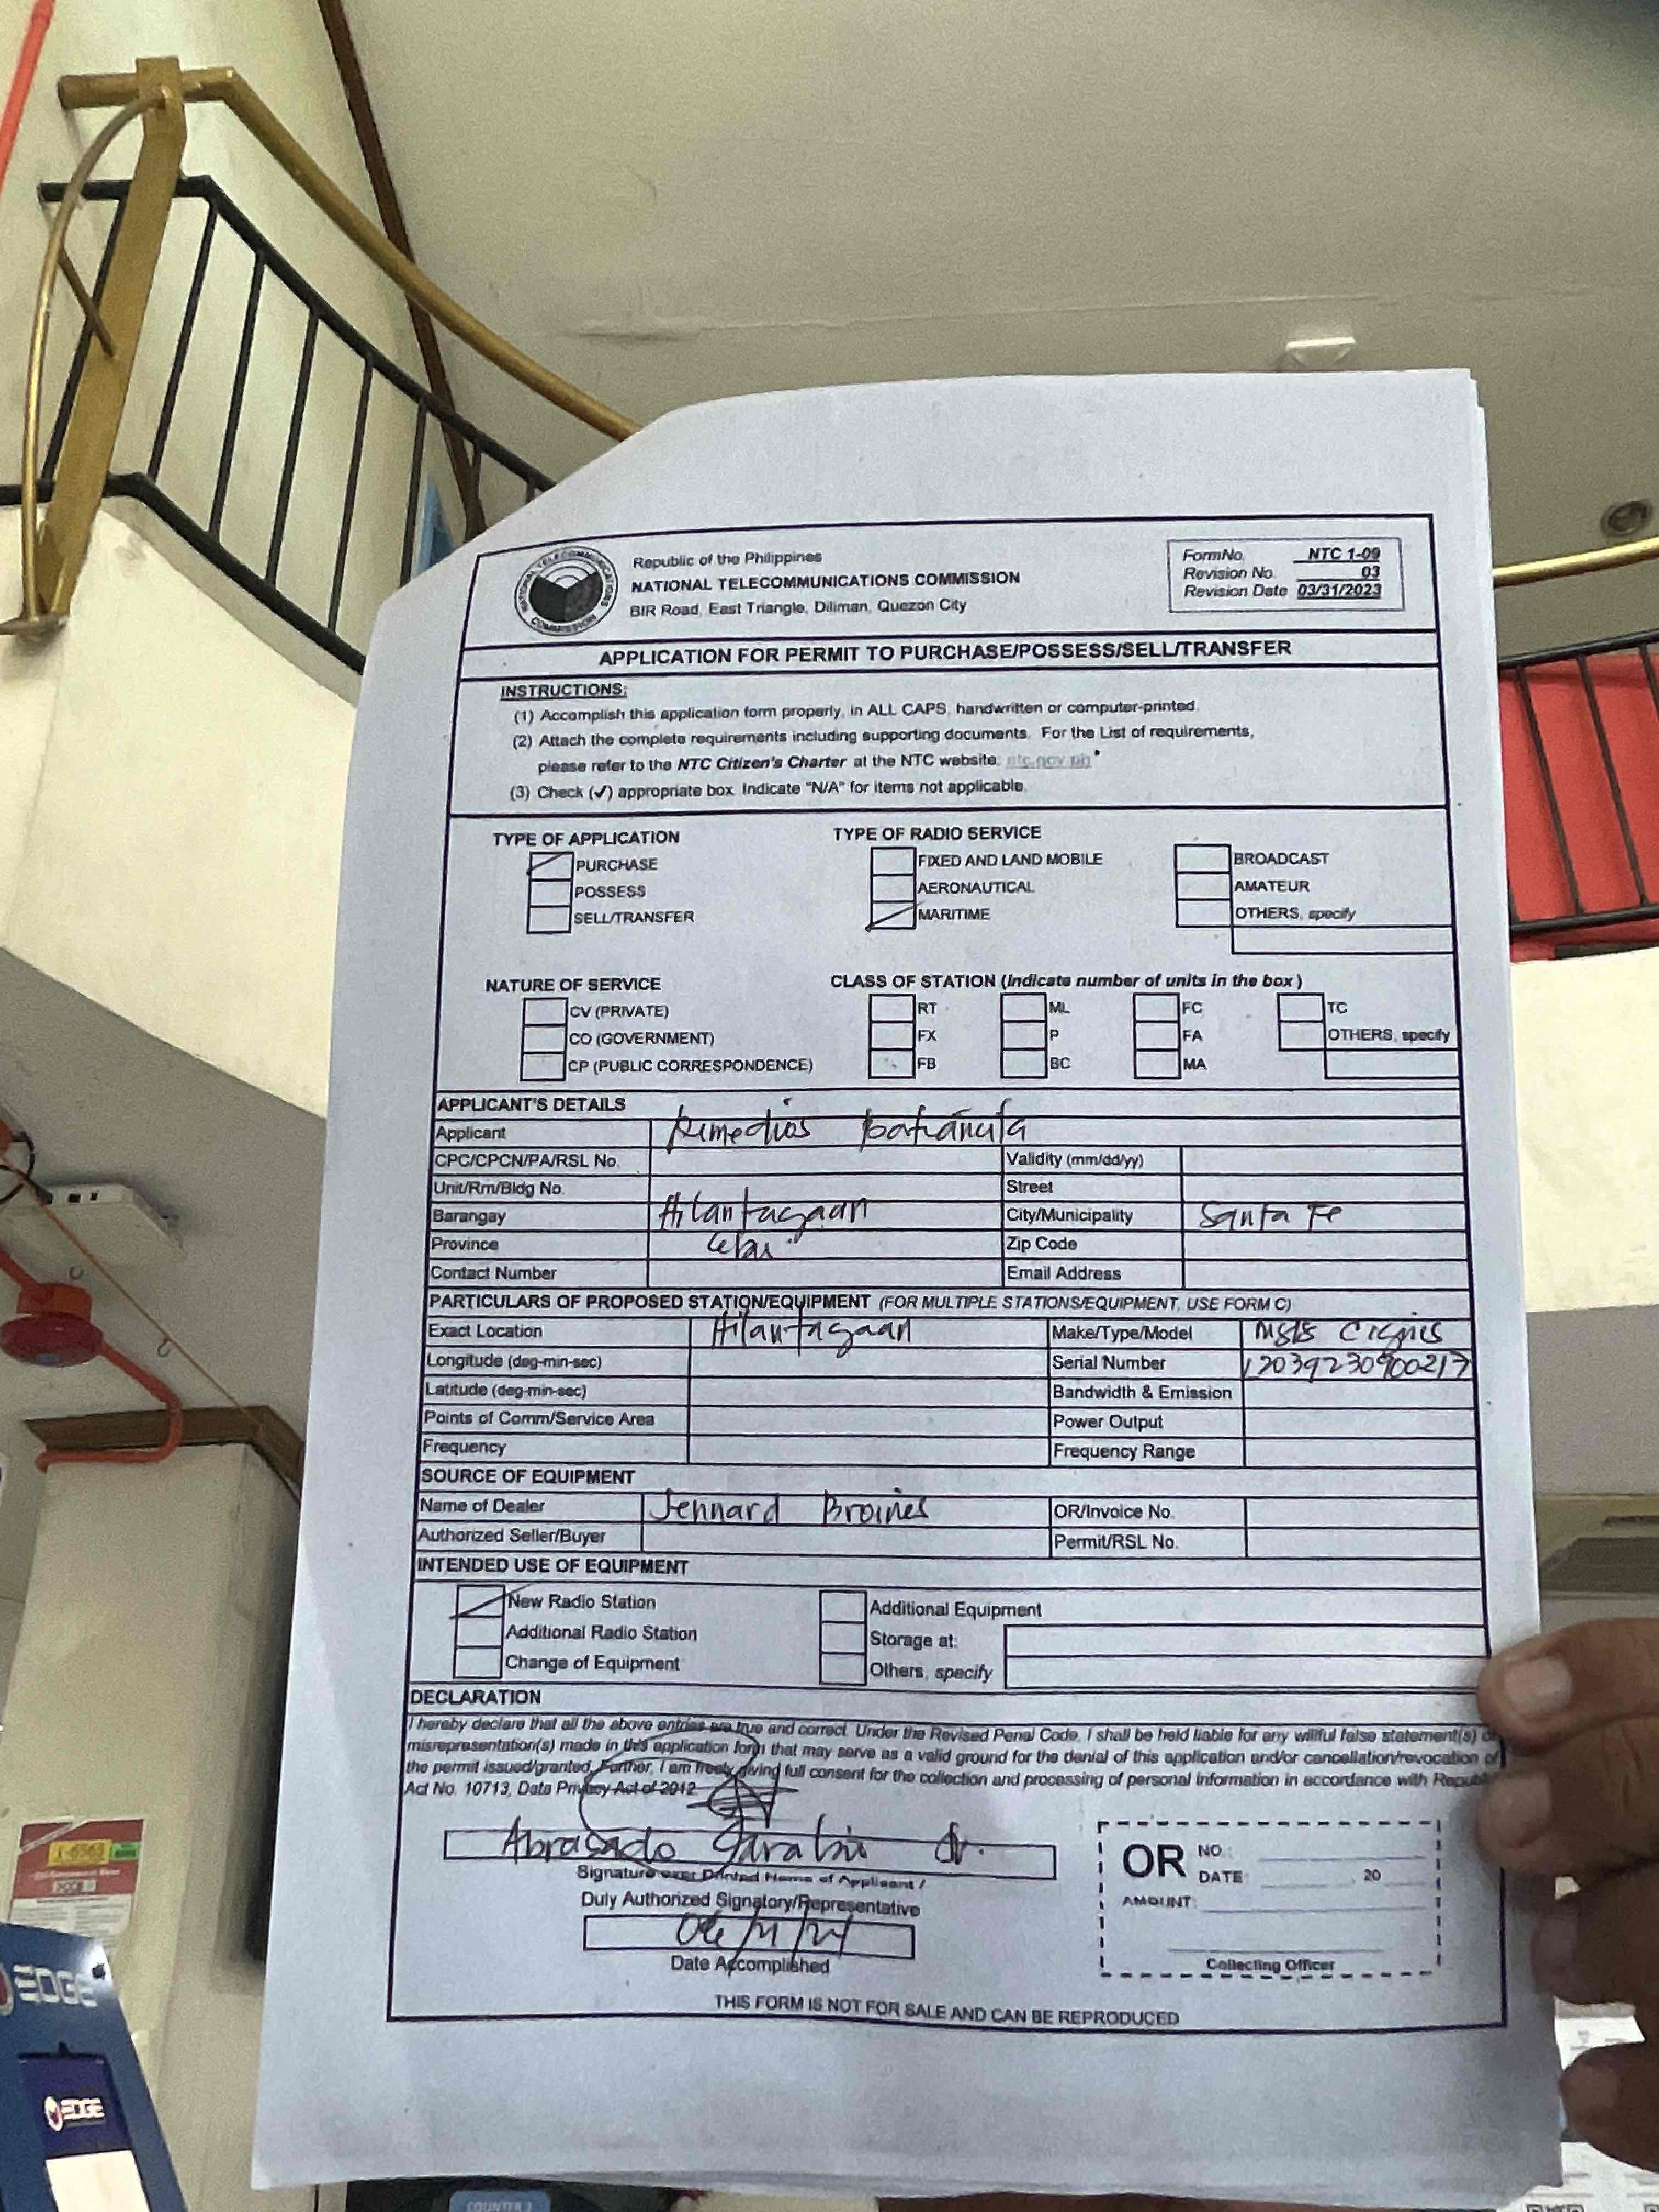 Republic of the Philippines
NATIONAL TELECOMMUNICATIONS COMMISSION
BIR Road, East Triangle, Diliman, Quezon City
NATIONAL TELECOMMUNICATIONS COMMISSION
FormNo. NTC 1-09
Revision No. 03
Revision Date 03/31/2023
APPLICATION FOR PERMIT TO PURCHASE/POSSESS/SELL/TRANSFER
INSTRUCTIONS:
(1) Accomplish this application form properly, in ALL CAPS, handwritten or computer-printed.
(2) Attach the complete requirements including supporting documents. For the List of requirements,
please refer to the NTC Citizen's Charter at the NTC website: ntc.gov.ph
(3) Check (✓) appropriate box. Indicate "N/A" for items not applicable.
TYPE OF APPLICATION
PURCHASE
POSSESS
SELL/TRANSFER
TYPE OF RADIO SERVICE
FIXED AND LAND MOBILE
AERONAUTICAL
MARITIME
BROADCAST
AMATEUR
OTHERS, specify
NATURE OF SERVICE
CV (PRIVATE)
CO (GOVERNMENT)
CP (PUBLIC CORRESPONDENCE)
CLASS OF STATION (Indicate number of units in the box)
RT ML FC TC
FX P FA OTHERS, specify
FB BC MA
APPLICANT'S DETAILS
Applicant Remedios
CPC/CPCN/PA/RSL No. Validity (mm/dd/yy)
Unit/Rm/Bldg No. Street
Barangay Hilantagaan City/Municipality Santa Fe
Province Cebu Zip Code
Contact Number Email Address
PARTICULARS OF PROPOSED STATION/EQUIPMENT (FOR MULTIPLE STATIONS/EQUIPMENT, USE FORM C)
Exact Location Hilantagaan Make/Type/Model
Longitude (deg-min-sec) Serial Number 12039230900217
Latitude (deg-min-sec) Bandwidth & Emission
Points of Comm/Service Area Power Output
Frequency Frequency Range
SOURCE OF EQUIPMENT
Name of Dealer Jennard Broines OR/Invoice No.
Authorized Seller/Buyer Permit/RSL No.
INTENDED USE OF EQUIPMENT
New Radio Station Additional Equipment
Additional Radio Station Storage at:
Change of Equipment Others, specify
DECLARATION
I hereby declare that all the above entries are true and correct. Under the Revised Penal Code, I shall be held liable for any willful false statement(s) or
misrepresentation(s) made in this application form that may serve as a valid ground for the denial of this application and/or cancellation/revocation of
the permit issued/granted. Further, I am freely giving full consent for the collection and processing of personal information in accordance with Republic
Act No. 10713, Data Privacy Act of 2012
Abrasado Sarabia Jr.
Signature over Printed Name of Applicant /
Duly Authorized Signatory/Representative
Date Accomplished
OR NO.:
DATE: , 20
AMOUNT:
Collecting Officer
THIS FORM IS NOT FOR SALE AND CAN BE REPRODUCED
EDGE
EDGE
COUNTER 2